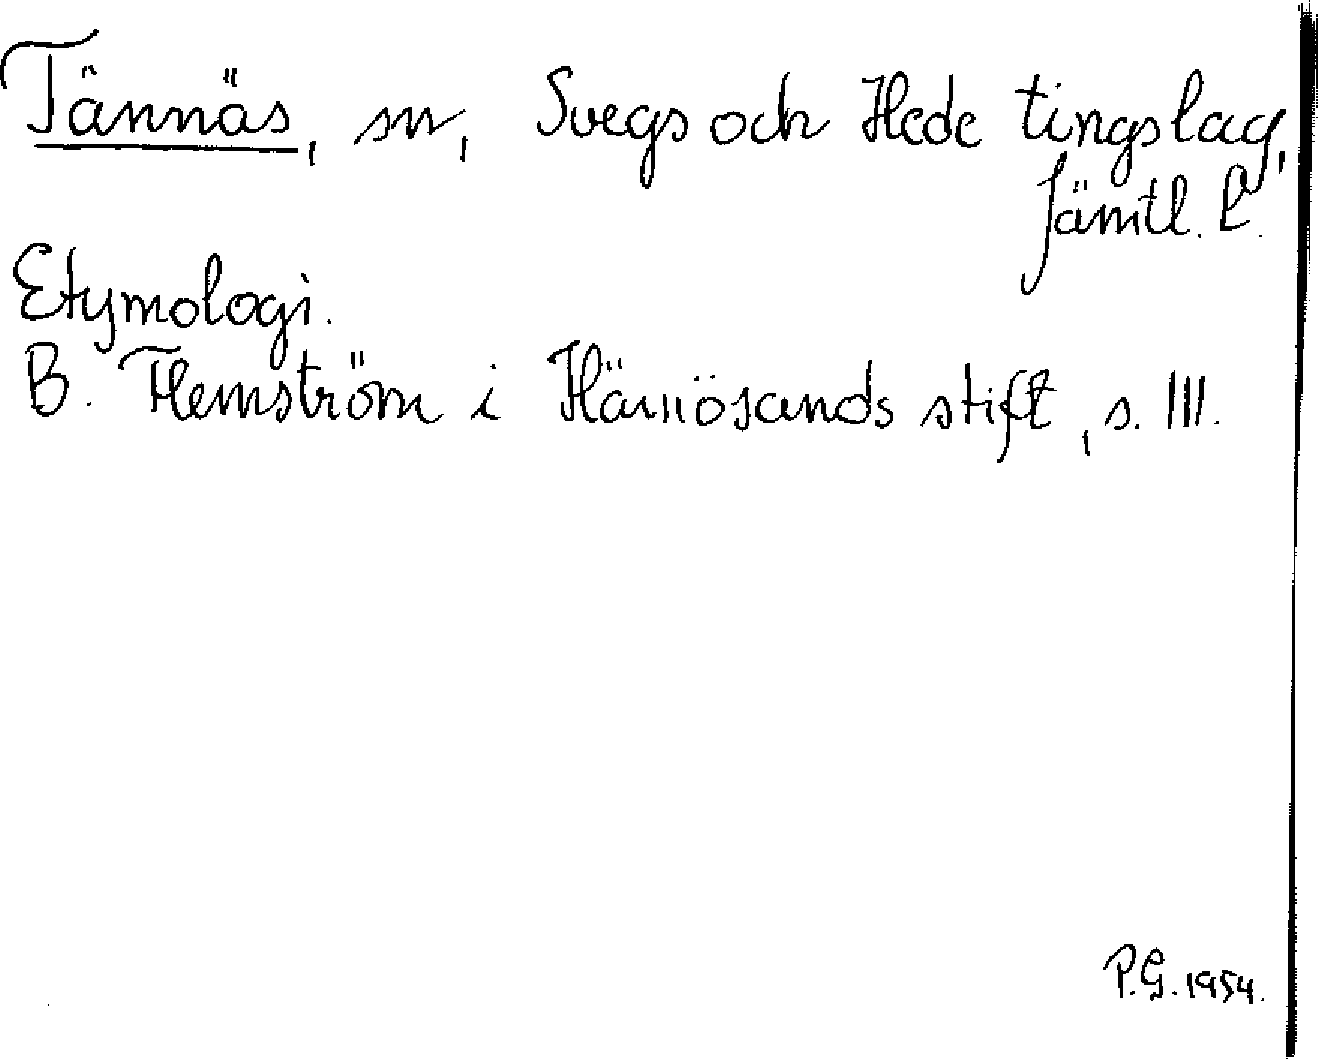 Tännäs, sn, Svegs och Hede tingslag,
Jämtl. L.
Etymologi.
B. Flemström i Härnösands stift, s. 111.
P.G. 1954.